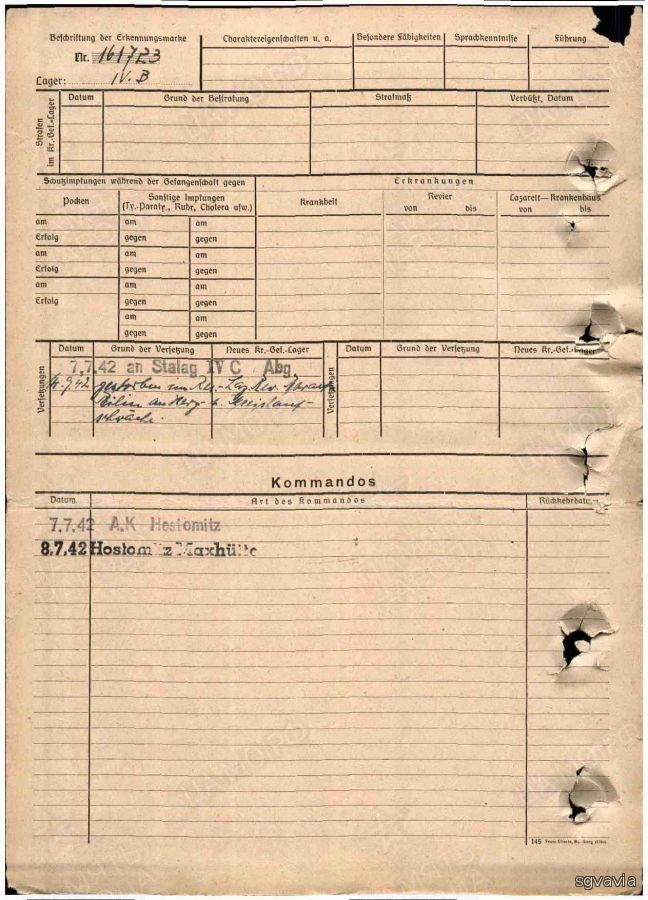 Beschriftung der Erkennungsmarke
Nr. 161723
Lager: IV.B
Charaktereigenschaften u. a.
Besondere Fähigkeiten
Sprachkenntnisse
Führung
Strafen im Kr.-Gef.-Lager
Datum
Grund der Bestrafung
Strafmaß
Verbüßt, Datum
Schutzimpfungen während der Gefangenschaft gegen
Erkrankungen
Pocken
Sonstige Impfungen
(Ty.-Paraty., Ruhr, Cholera usw.)
Krankheit
Revier
von bis
Lazarett—Krankenhaus
von bis
am am am
Erfolg gegen gegen
am am am
Erfolg gegen gegen
am am am
Erfolg gegen gegen
am am
gegen gegen
Versetzungen
Datum
Grund der Versetzung
Neues Kr.-Gef.-Lager
Versetzungen
Datum
Grund der Versetzung
Neues Kr.-Gef.-Lager
7.7.42 an Stalag IV C Abg.
9.42 gestorben im Res.-Laz.
Bilin an Herz- u. Kreislauf-
schwäche.
Kommandos
Datum
Art des Kommandos
Rückkehrdatum
7.7.42 A.K Hostomitz
8.7.42 Hostomitz Maxhütte
145
sgvavia